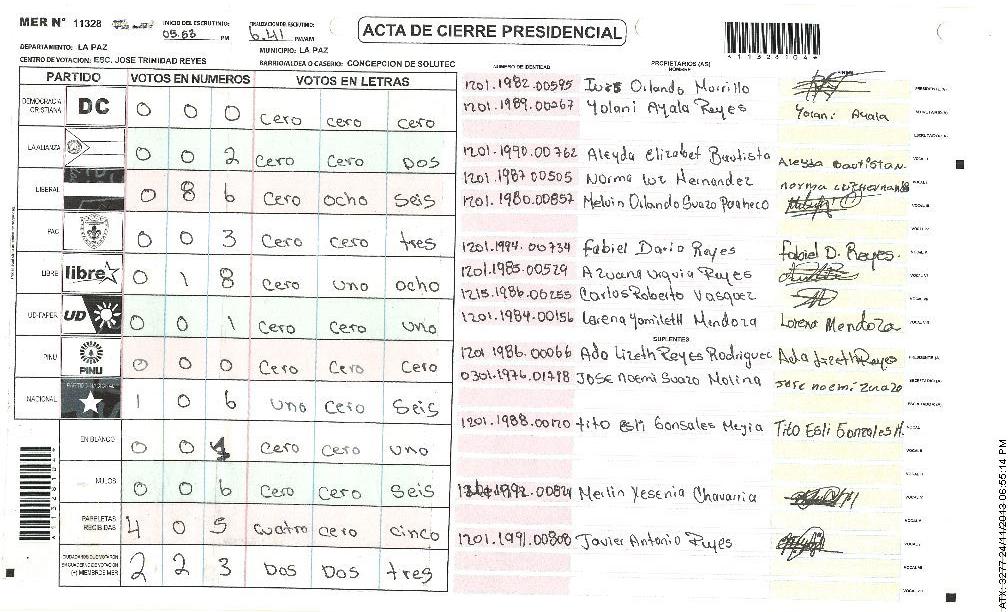 MER N° 11328
INICIO DEL ESCRUTINIO: 05.53 PM
FINALIZACION DE ESCRUTINIO: 6.41 PM/AM
ACTA DE CIERRE PRESIDENCIAL
DEPARTAMENTO: LA PAZ
MUNICIPIO: LA PAZ
CENTRO DE VOTACION: ESC. JOSE TRINIDAD REYES
BARRIO/ALDEA O CASERIO: CONCEPCION DE SOLUTEC
PARTIDO VOTOS EN NUMEROS VOTOS EN LETRAS
DEMOCRACIA CRISTIANA DC 0 0 0 cero cero cero
LA ALIANZA 0 0 2 cero cero DOS
LIBERAL 0 8 6 cero ocho seis
PAC 0 0 3 cero cero tres
LIBRE libre 0 1 8 cero uno ocho
UD-FAPER UD 0 0 1 cero cero uno
PINU PINU 0 0 0 cero cero cero
NACIONAL PARTIDO NACIONAL 1 0 6 uno cero seis
EN BLANCO 0 0 1 cero cero uno
NULOS 0 0 6 cero cero seis
PAPELETAS RECIBIDAS 4 0 5 cuatro cero cinco
CIUDADANOS QUE VOTARON EN CUADERNO DE VOTACION (+) MIEMBROS MER 2 2 3 DOS DOS tres
NUMERO DE IDENTIDAD PROPIETARIOS (AS) NOMBRE FIRMA
1201.1982.00595 Orlando Morrillo
1201.1989.00267 Yolani Ayala Reyes Yolani Ayala
1201.1990.00762 Aleyda Elizabet Bautista Aleyda Bautista
1201.1987.00505 Norma luz Hernandez norma luz Hernandez
1201.1980.00857 Melvin Orlando Suazo Pacheco
1201.1994.00734 Fabiel Dario Reyes Fabiel D. Reyes.
1201.1985.00529 Reyes
1215.1986.00255 Carlos Roberto Vasquez
1201.1984.00156 Lorena Yamileth Mendoza Lorena Mendoza
SUPLENTES
1201 1986.00066 Ada Lizeth Reyes Rodriguez Ada Lizeth Reyes
0301.1976.01798 JOSE Noemi Suazo Molina jose noemi zuazo
1201.1988.00170 tito Esli Gonsales Mejia Tito Esli Gonzales M.
1992.00824 Merlin Yesenia Chavarria
1201.1991.00808 Javier Antonio Reyes
ATX: 3277-24/11/2013 06:55:14 PM